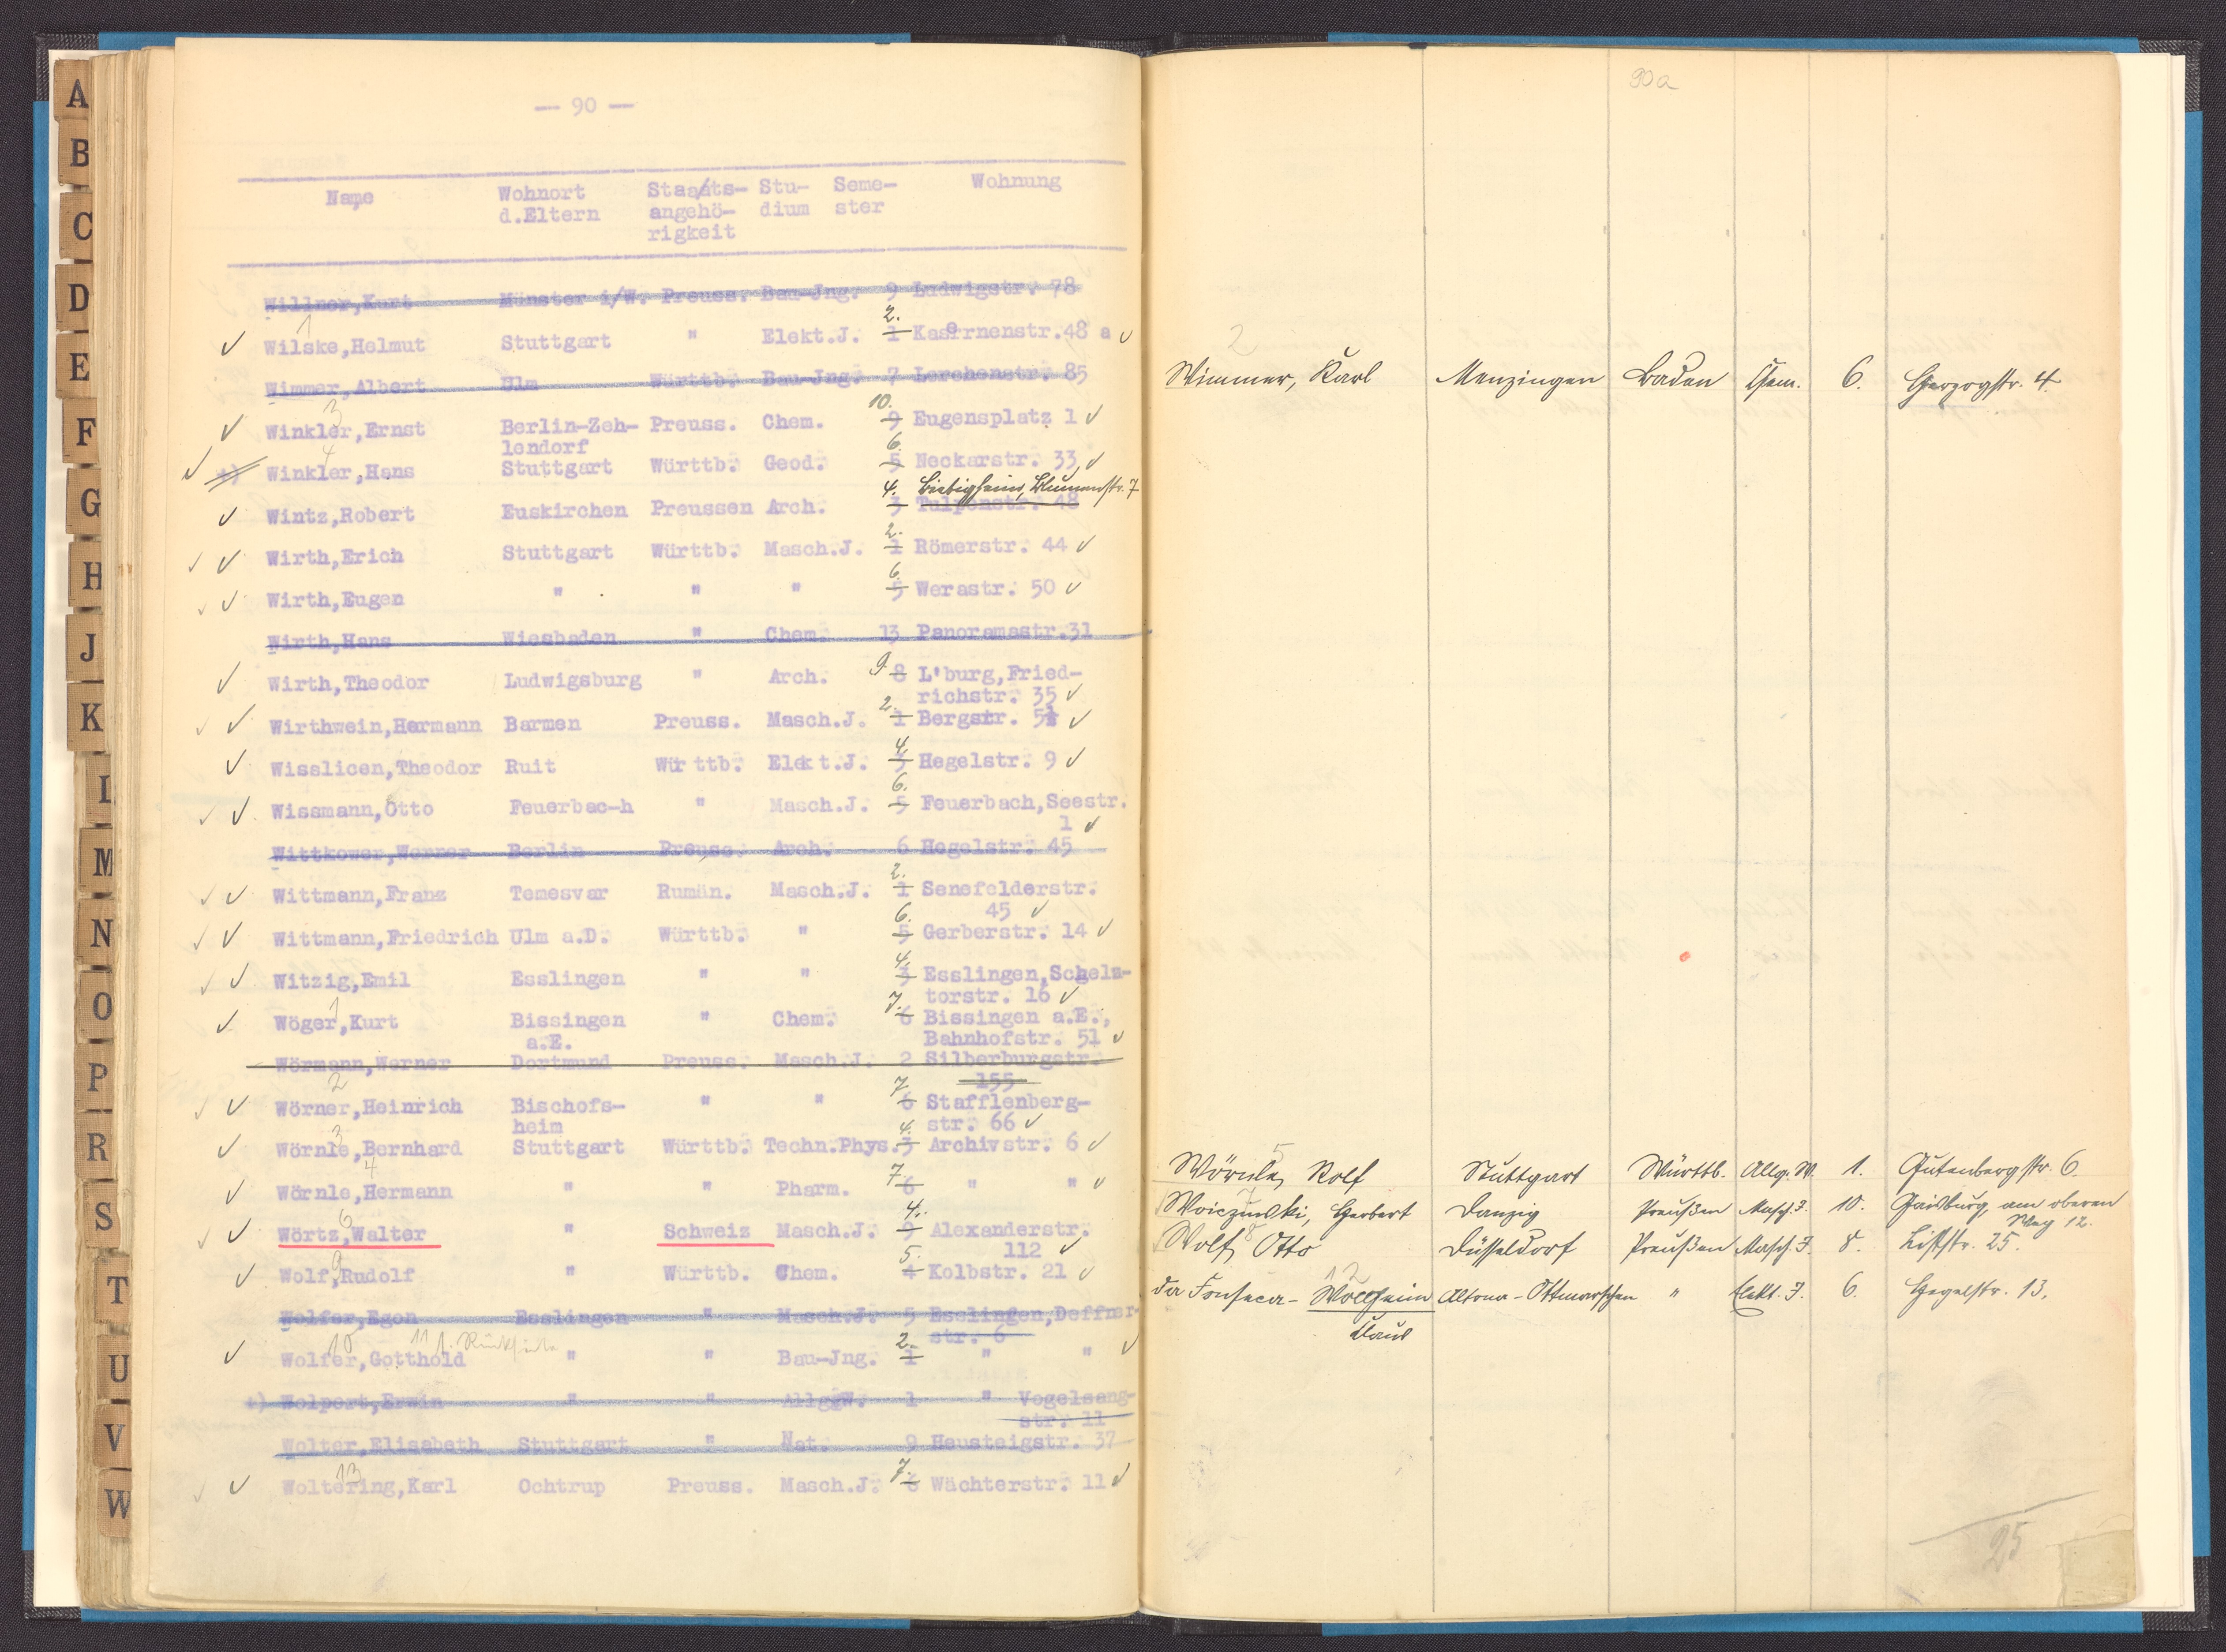 A
B
C
D
E
F
G
H
J
K
L
M
N
O
P
R
S
T
U
V
W
— 90 —
Name Wohnort Staaats- Stu- Seme- Wohnung
d.Eltern angehö- dium ster
rigkeit
Willner,Kurt Münster i/W. Preuss. Bau-Jng. 9 Ludwigstr. 78
1 2.
✓ Wilske,Helmut Stuttgart " Elekt.J. 1 Kasernenstr.48 a ✓
Wimmer,Albert Ulm Württb. Bau-Jng. 7 Lerchenstr. 85
3 10.
✓ Winkler,Ernst Berlin-Zeh- Preuss. Chem. 9 Eugensplatz 1 ✓
lendorf
4 6.
✓ +) Winkler,Hans Stuttgart Württb. Geod. 5 Neckarstr. 33 ✓
4. Bietigheim, Blumenstr. 7
✓ Wintz,Robert Euskirchen Preussen Arch. 3 Tulpenstr. 48
2.
✓ ✓ Wirth,Erich Stuttgart Württb. Masch.J. 1 Römerstr. 44 ✓
6.
✓ ✓ Wirth,Eugen " " " 5 Werastr. 50 ✓
Wirth,Hans Wiesbaden " Chem. 13 Panoramastr.31
✓ Wirth,Theodor Ludwigsburg " Arch. 9 8 L'burg,Fried-
richstr. 35 ✓
2.
✓ ✓ Wirthwein,Hermann Barmen Preuss. Masch.J. 1 Bergstr. 5 ✓
4.
✓ Wisslicen,Theodor Ruit Württb. Elekt.J. 3 Hegelstr. 9 ✓
6.
✓ ✓ Wissmann,Otto Feuerbac-h " Masch.J. 5 Feuerbach,Seestr.
1 ✓
Wittkower,Werner Berlin Preuss. Arch. 6 Hegelstr. 45
2.
✓ ✓ Wittmann,Franz Temesvar Rumän. Masch.J. 1 Senefelderstr.
45 ✓
6.
✓ ✓ Wittmann,Friedrich Ulm a.D. Württb. " 5 Gerberstr. 14 ✓
4.
✓ ✓ Witzig,Emil Esslingen " " 3 Esslingen,Schelz-
torstr. 16 ✓
1 7.
✓ Wöger,Kurt Bissingen " Chem. 6 Bissingen a.E.,
a.E. Bahnhofstr. 51 ✓
Wörmann,Werner Dortmund Preuss. Masch.J. 2 Silberburgstr.
155
2 7.
✓ ✓ Wörner,Heinrich Bischofs- " " 6 Stafflenberg-
heim str. 66 ✓
3 4.
✓ Wörnle,Bernhard Stuttgart Württb. Techn.Phys. 3 Archivstr. 6 ✓
4 7.
✓ Wörnle,Hermann " " Pharm. 6 " " ✓
6 4.
✓ ✓ Wörtz,Walter " Schweiz Masch.J. 9 Alexanderstr.
112 ✓
9 5.
✓ Wolf,Rudolf " Württb. Chem. 4 Kolbstr. 21 ✓
Wolfer,Egon Esslingen " Masch.J. 5 Esslingen,Deffner-
str. 6
10 11 2.
✓ Wolfer,Gotthold " " Bau-Jng. 1 " " ✓
+) Wolpert,Erwin " " AllggW. 1 " Vogelsang-
str. 11
Wolter,Elisabeth Stuttgart " Nat. 9 Heusteigstr. 37
13 7.
✓ ✓ Woltering,Karl Ochtrup Preuss. Masch.J. 6 Wächterstr. 11 ✓
90a
2
Wimmer, Karl Menzingen Baden Chem. 6. Herzogstr. 4.
5
Wörnle, Rolf Stuttgart Württb. Allg. W. 1. Gutenbergstr. 6.
7
Woiczinski, Herbert Danzig Preußen Masch. J. 10. Gaisburg, am oberen
Weg 12.
8
Wolf, Otto Düsseldorf Preußen Masch. J. 8. Listr. 25.
12
da Fonseca-Wollheim Altona-Ottmarschen " Elekt. J. 6. Hegelstr. 13.
25